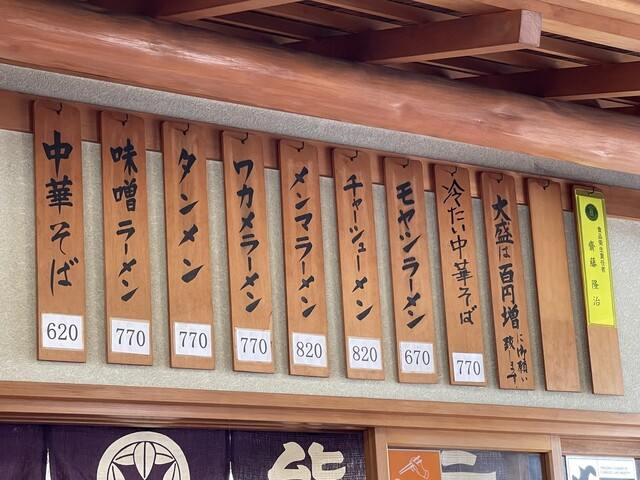 中華そば
620
味噌ラーメン
770
タンメン
770
ワカメラーメン
770
メンマラーメン
820
チャーシューメン
820
モヤシラーメン
670
冷たい中華そば
770
大盛は百円増
にお願い
致します
食品衛生責任者
齋藤隆治